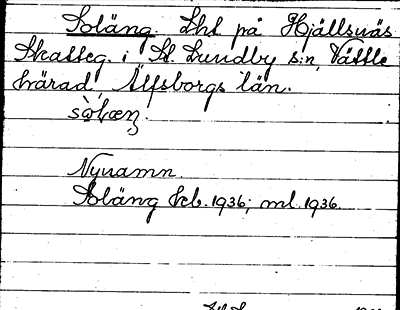 Soläng. Lht på Hjällsnäs
Skatteg. i St. Lundby s:n, Vättle
härad, Älfsborgs län.
Nynamn.
Soläng Veb. 1936; ml. 1936.